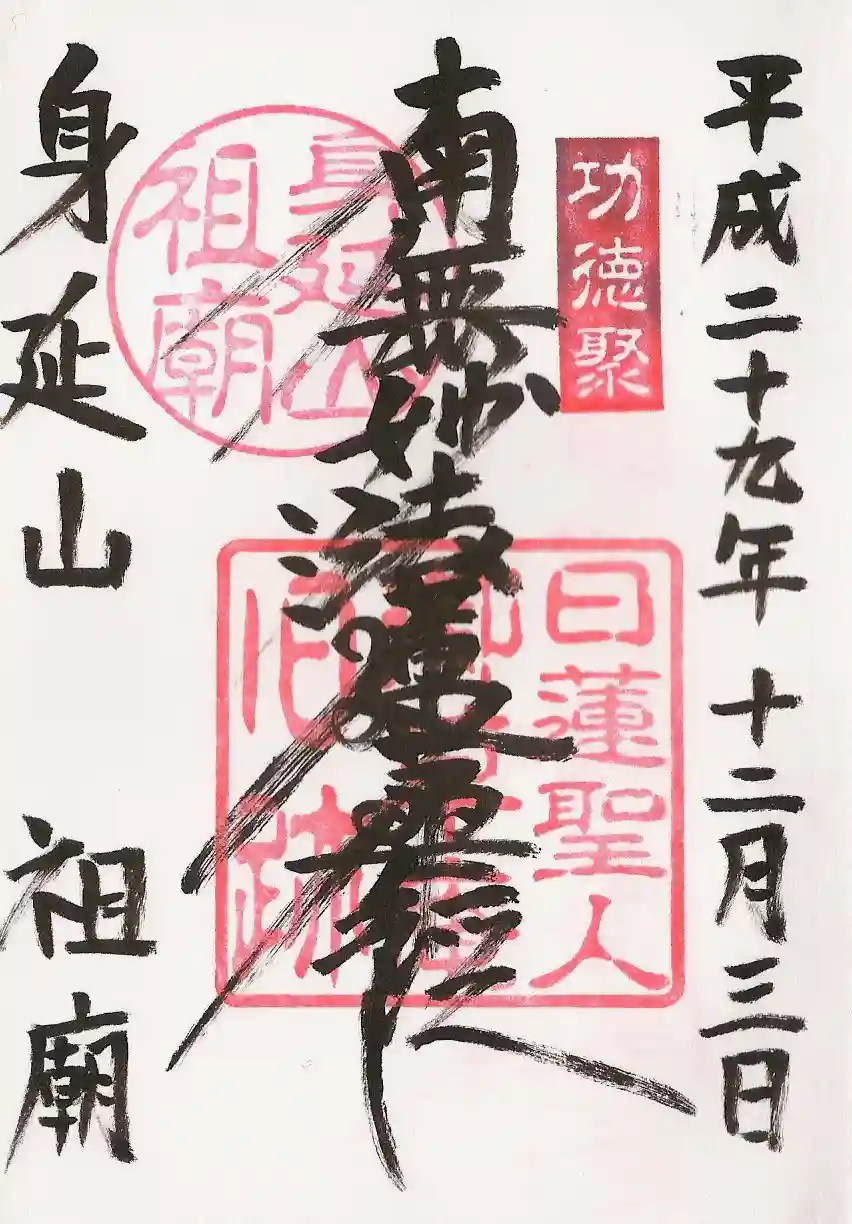 平成二十九年 十二月三日
功徳聚
日蓮聖人
旧跡
南無妙法蓮華経
身延山
祖廟
身延山 祖廟